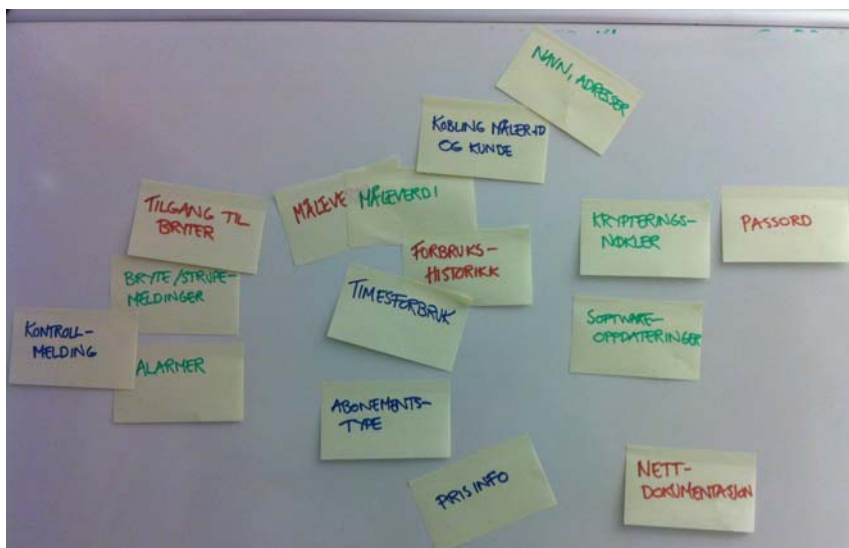 NAVN, ADRESSER
KOBLING MÅLER-ID
OG KUNDE
TILGANG TIL
BRYTER
MÅLEVE
MÅLEVERDI
KRYPTERINGS-
NØKLER
PASSORD
FORBRUKS-
HISTORIKK
BRYTE/STRUPE-
MELDINGER
TIMESFORBRUK
KONTROLL-
MELDING
SOFTWARE-
OPPDATERINGER
ALARMER
ABONEMENTS-
TYPE
PRISINFO
NETT-
DOKUMENTASJON